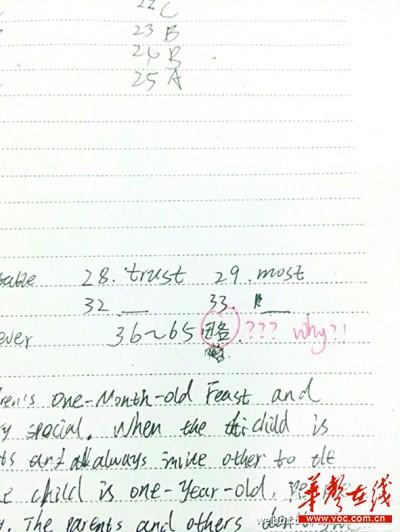 22 C
23 B
24 B
25 A
28. trust 29. most
32 33.
ever 36~65 略 ??? why?!
ren's One-Month-old Feast and
special. When the child is
and always invite other to the
child is one-year-old,
The parents and others
华声在线
www.voc.com.cn